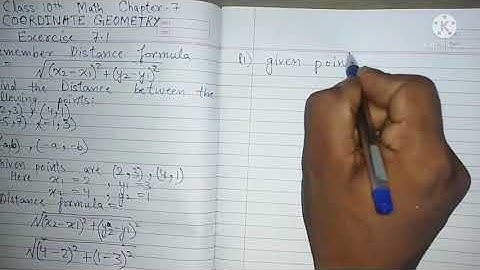 Class 10th Math Chapter-7
COORDINATE GEOMETRY
Exercise 7.1
emember Distance formula
= √(x2-x1)²+(y2-y1)²
ind the Distance between the
llowing points:
2,3), (4,1)
-5,7), (-1,3)
a,b), (-a,-b)
Given points are (2,3), (4,1)
Here x1 = 2, y1 = 3
x2 = 4, y2 = 1
Distance formula:-
√(x2-x1)²+(y2-y1)²
√(4-2)²+(1-3)²
given poin